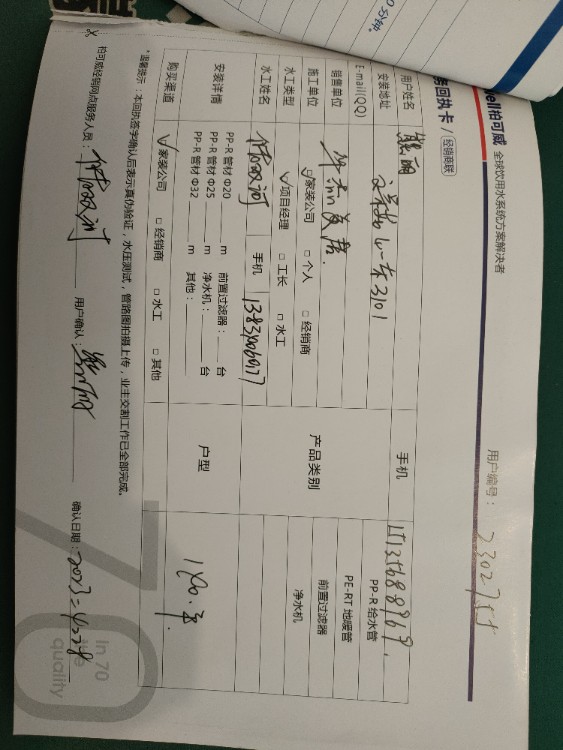 0分钟.
ell柏可威 全球饮用水系统方案解决者
用户编号：2302755
务回执卡 / 经销商联
用户姓名 熊丽 手机
安装地址 PP-R 给水管
E-mail(QQ) PE-RT 地暖管
销售单位 前置过滤器
施工单位 ☑家装公司 □ 个人 □ 经销商 产品类别 净水机
水工类型 ☑项目经理 □ 工长 □ 水工
水工姓名 手机
安装详情 PP-R 管材 Φ20 m 前置过滤器： 台
PP-R 管材 Φ25 m 净水机： 台
PP-R 管材 Φ32 m 其他：
户型 180平.
购买渠道 ☑家装公司 □ 经销商 □ 水工 □ 其他
*温馨提示：本回执签字确认后表示真伪验证，水压测试，管路图拍摄上传，业主交割工作已全部完成。
柏可威经销网点服务人员： 用户确认： 确认日期：
In 70
quality